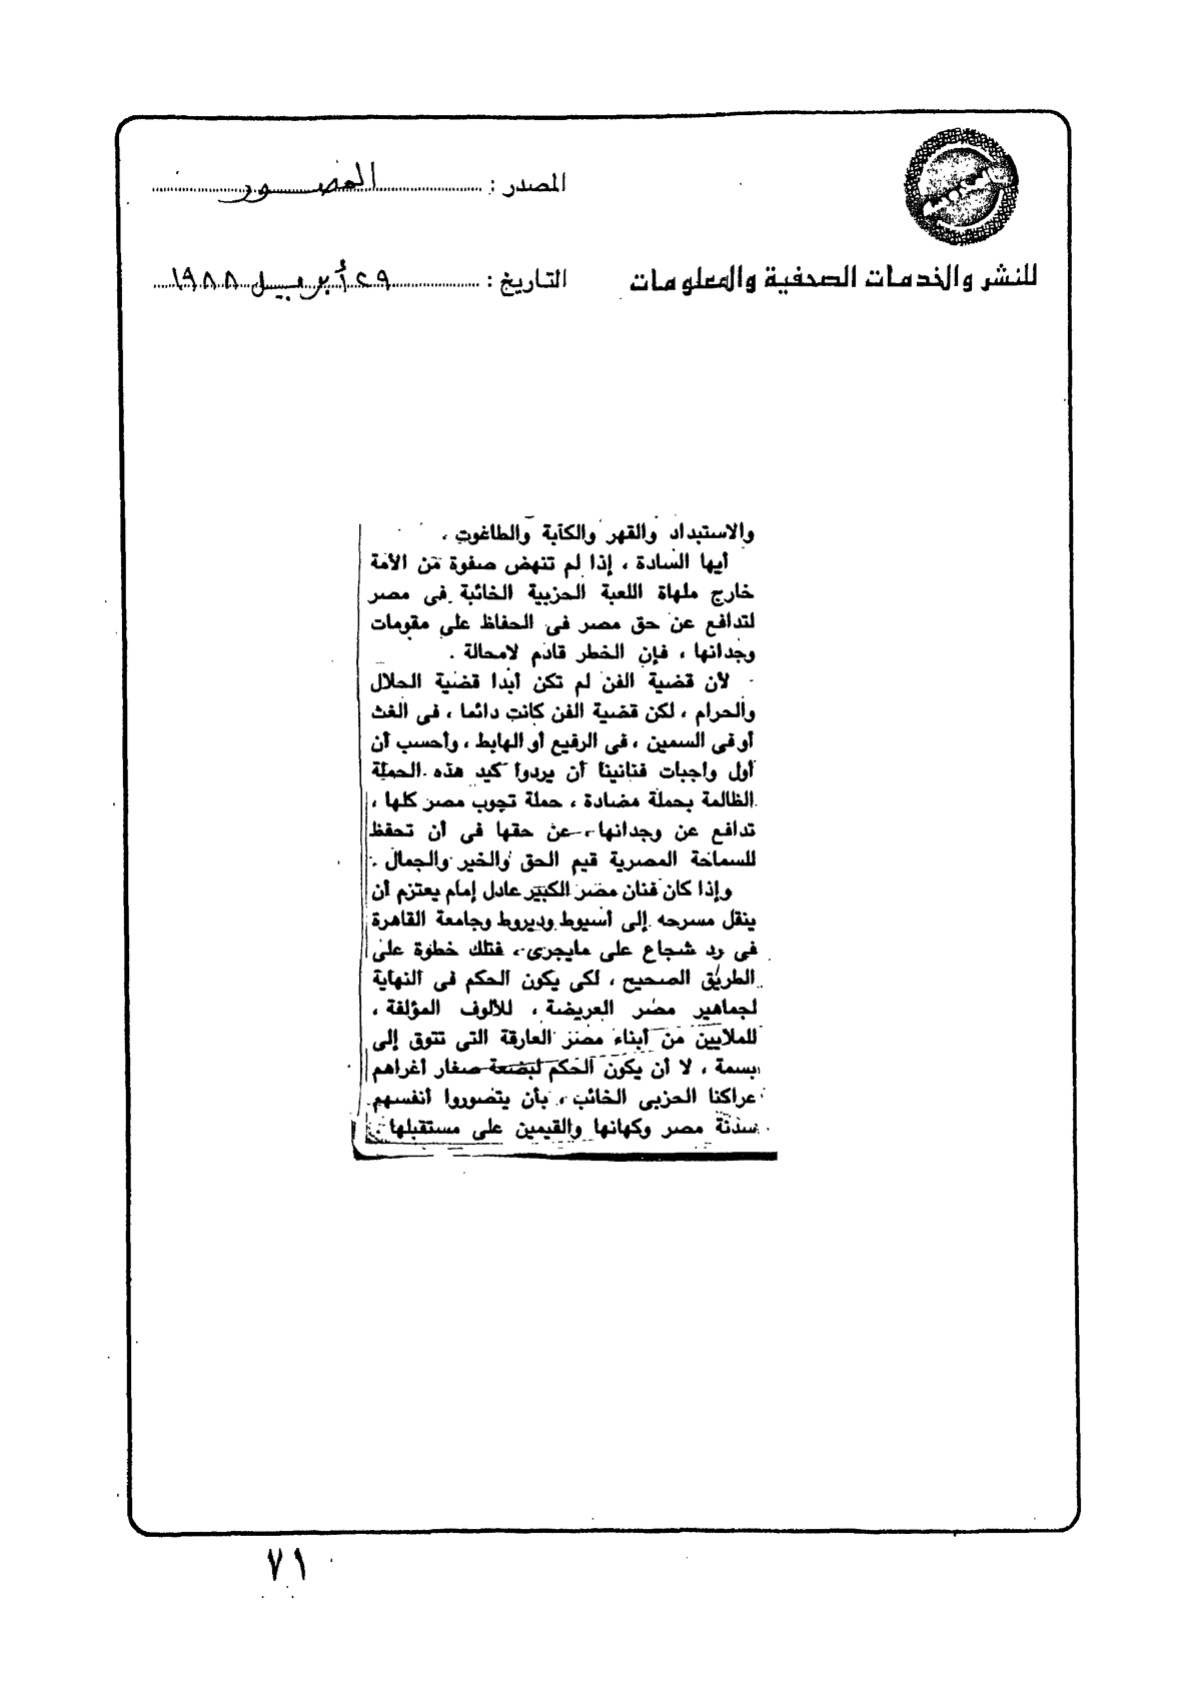 المصدر : المصور
للنشر والخدمات الصحفية والمعلومات
التاريخ : ٢٩ أبريل ١٩٨٨
والاستبداد والقهر والكآبة والطاغوت ،
أيها السادة ، إذا لم تنهض صفوة من الأمة
خارج ملهاة اللعبة الحزبية الخائبة فى مصر
لتدافع عن حق مصر فى الحفاظ على مقومات
وجدانها ، فإن الخطر قادم لامحالة .
لأن قضية الفن لم تكن أبدا قضية الحلال
والحرام ، لكن قضية الفن كانت دائما ، فى الغث
أوفى السمين ، فى الرفيع أو الهابط ، وأحسب أن
أول واجبات فنانينا أن يردوا كيد هذه الحملة
الظالمة بحملة مضادة ، حملة تجوب مصر كلها ،
تدافع عن وجدانها ، عن حقها فى أن تحفظ
للسماحة المصرية قيم الحق والخير والجمال .
وإذا كان فنان مصر الكبير عادل إمام يعتزم أن
ينقل مسرحه إلى أسيوط وديروط وجامعة القاهرة
فى رد شجاع على مايجرى ، فتلك خطوة على
الطريق الصحيح ، لكى يكون الحكم فى النهاية
لجماهير مصر العريضة ، للألوف المؤلفة ،
للملايين من أبناء مصر العارقة التى تتوق إلى
بسمة ، لا أن يكون الحكم لبضعة صغار أغراهم
عراكنا الحزبى الخائب ، بأن يتصوروا أنفسهم
سدنة مصر وكهانها والقيمين على مستقبلها .
٧١